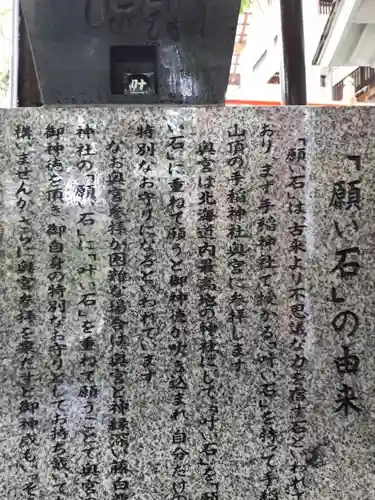 叶
「願い石」の由来
「願い石」は古来より不思議な力を宿す石といわれ
おり、まず手稲神社で授かる「叶い石」を持って手
山頂の手稲神社奥宮に参拝します
奥宮は北海道内最高地の神社にして「叶い石」を「
い石」に重ねて願うと御神徳が吹き込まれ、自分だけの
特別なお守りになるといわれています
なお奥宮参拝が困難な場合は奥宮と神縁深い藤白
神社の「願い石」に「叶い石」を重ねて願うことで奥宮
御神徳を頂き御自身の特別なお守りとしてお持ち戴いて
構いませんが、さらに奥宮参拝を果たすと御神威も、そ